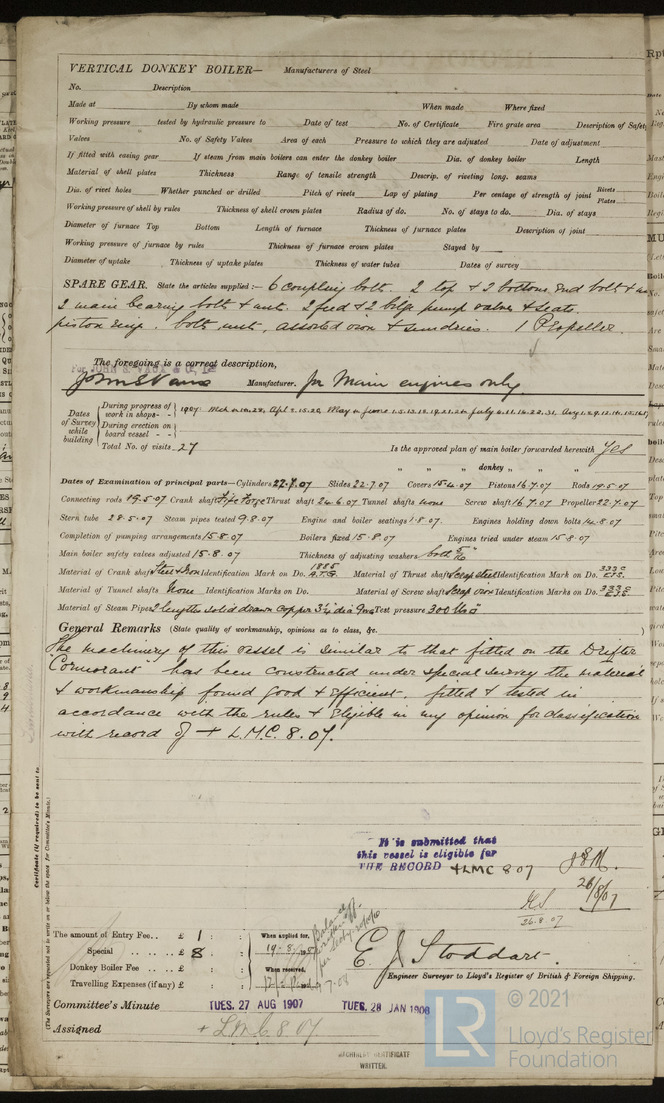 VERTICAL DONKEY BOILER— Manufacturers of Steel
No. Description
Made at By whom made When made Where fixed
Working pressure tested by hydraulic pressure to Date of test No. of Certificate Fire grate area Description of Safety
Valves No. of Safety Valves Area of each Pressure to which they are adjusted Date of adjustment
If fitted with easing gear If steam from main boilers can enter the donkey boiler Dia. of donkey boiler Length
Material of shell plates Thickness Range of tensile strength Descrip. of riveting long. seams
Dia. of rivet holes Whether punched or drilled Pitch of rivets Lap of plating Per centage of strength of joint Rivets Plates
Working pressure of shell by rules Thickness of shell crown plates Radius of do. No. of stays to do. Dia. of stays
Diameter of furnace Top Bottom Length of furnace Thickness of furnace plates Description of joint
Working pressure of furnace by rules Thickness of furnace crown plates Stayed by
Diameter of uptake Thickness of uptake plates Thickness of water tubes Dates of survey
SPARE GEAR. State the articles supplied:— 6 coupling bolts. 2 top & 2 bottom end bolts &
2 main bearing bolts & nuts. 2 feed & 2 bilge pump valves & seats.
piston rings. bolts, nuts, assorted iron & sundries. 1 Propeller.
The foregoing is a correct description,
Manufacturer. for Main engines only.
Dates of Survey while building
During progress of work in shops - - 1907
During erection on board vessel - -
Total No. of visits 27 Is the approved plan of main boiler forwarded herewith Yes
" " " donkey " " "
Dates of Examination of principal parts—Cylinders 22.7.07 Slides 22.7.07 Covers 15.4.07 Pistons 16.7.07 Rods 19.5.07
Connecting rods 19.5.07 Crank shaft Thrust shaft 24.6.07 Tunnel shafts none Screw shaft 16.7.07 Propeller 22.7.07
Stern tube 28.5.07 Steam pipes tested 9.8.07 Engine and boiler seatings 1.8.07 Engines holding down bolts 14.8.07
Completion of pumping arrangements 15.8.07 Boilers fixed 15.8.07 Engines tried under steam 15.8.07
Main boiler safety valves adjusted 15.8.07 Thickness of adjusting washers both
Material of Crank shaft Steel & Iron Identification Mark on Do. 1885 A.T.G. Material of Thrust shaft Scrap steel Identification Mark on Do.
Material of Tunnel shafts None Identification Marks on Do. Material of Screw shafts Scrap iron Identification Marks on Do.
Material of Steam Pipes 2 lengths solid drawn copper Test pressure 300 lbs
General Remarks (State quality of workmanship, opinions as to class, &c.
The machinery of this vessel is similar to that fitted on the Drifter
"Cormorant" has been constructed under special survey the material
& workmanship found good & efficient. fitted & tested in
accordance with the rules & Eligible in my opinion for classification
with record of + L.M.C. 8.07.
Certificate (if required) to be sent to
(The Surveyors are requested not to write on or below the space for Committee's Minute.)
It is submitted that
this vessel is eligible for
THE RECORD +LMC 8 07
26/8/07
26.8.07
The amount of Entry Fee.. £ 1 : : When applied for,
Special .. .. .. £ 8 : : 19.8.
Donkey Boiler Fee .. .. £ : : When received,
Travelling Expenses (if any) £ : :
E. J. Stoddart.
Engineer Surveyor to Lloyd's Register of British & Foreign Shipping.
Committee's Minute TUES. 27 AUG 1907 TUES. 28 JAN 1908
Assigned + L.M.C. 8.07
MACHINERY CERTIFICATE
WRITTEN.
LR © 2021
Lloyd's Register
Foundation